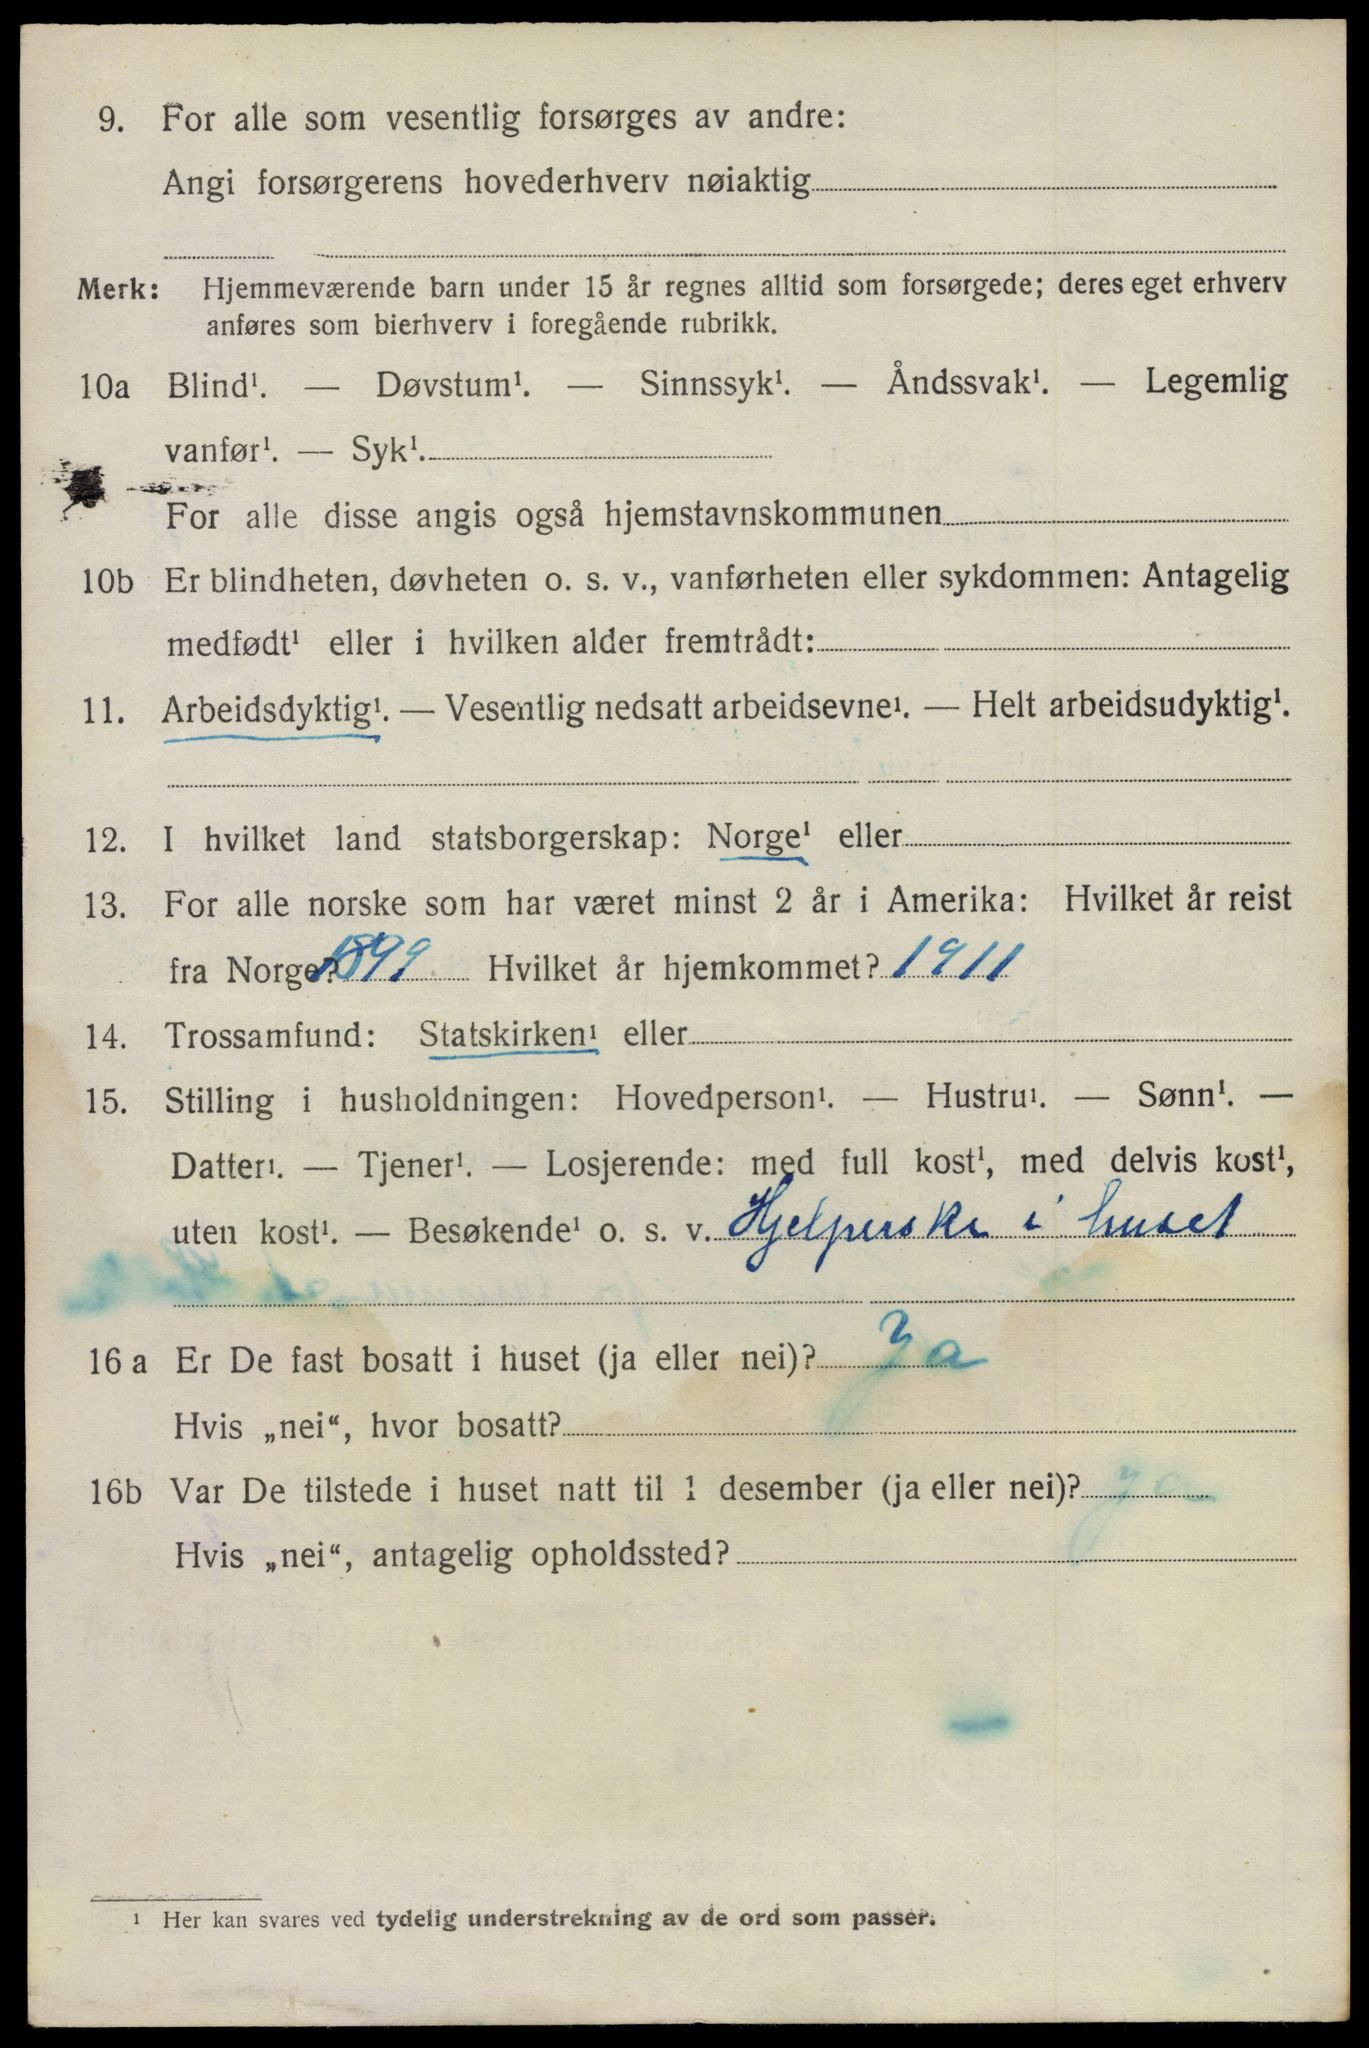 9. For alle som vesentlig forsørges av andre:
Angi forsørgerens hovederhverv nøiaktig
Merk: Hjemmeværende barn under 15 år regnes alltid som forsørgede; deres eget erhverv
anføres som bierhverv i foregående rubrikk.
10a Blind¹. — Døvstum¹. — Sinnssyk¹. — Åndssvak¹. — Legemlig
vanfør¹. — Syk¹.
For alle disse angis også hjemstavnskommunen
10b Er blindheten, døvheten o. s. v., vanførheten eller sykdommen: Antagelig
medfødt¹ eller i hvilken alder fremtrådt:
11. Arbeidsdyktig¹. — Vesentlig nedsatt arbeidsevne¹. — Helt arbeidsudyktig¹.
12. I hvilket land statsborgerskap: Norge¹ eller
13. For alle norske som har været minst 2 år i Amerika: Hvilket år reist
fra Norge? 1899 Hvilket år hjemkommet? 1911
14. Trossamfund: Statskirken¹ eller
15. Stilling i husholdningen: Hovedperson¹. — Hustru¹. — Sønn¹. —
Datter¹. — Tjener¹. — Losjerende: med full kost¹, med delvis kost¹,
uten kost¹. — Besøkende¹ o. s. v. Hjelperske i huset
16 a Er De fast bosatt i huset (ja eller nei)? Ja
Hvis „nei“, hvor bosatt?
16b Var De tilstede i huset natt til 1 desember (ja eller nei)? ja
Hvis „nei“, antagelig opholdssted?
¹ Her kan svares ved tydelig understrekning av de ord som passer.